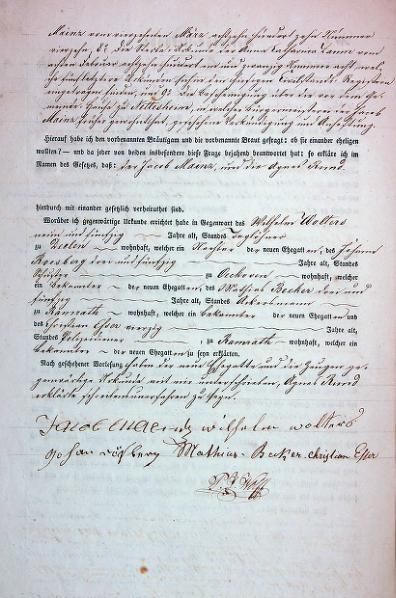 Mainz vom vierzehnten März achtzehn hundert zehn Nummer
vierzehn, 8., Die Sterbe-Urkunde der Anna Katharina Lamm vom
achten Februar achtzehn hundert und zwanzig Nummer acht, welche
fünf letztere Urkunden sich in hiesigen Civilstands-Registern
eingetragen finden, und 9., die Bescheinigung über die vor dem
Hause zu Nettesheim, in welcher Bürgermeisterei der Jacob
Mainz früher
Hierauf habe ich den vorbenannten Bräutigam und die vorbenannte Braut gefragt: ob sie einander ehelichen
wollten? — und da jeder von beiden insbesondere diese Frage bejahend beantwortet hat: so erkläre ich im
Namen des Gesetzes, daß: der Jacob Mainz, und die Agnes
hiedurch mit einander gesetzlich verheirathet sind.
Worüber ich gegenwärtige Urkunde errichtet habe in Gegenwart des Wilhelm Wolters
neun und fünfzig Jahre alt, Standes Taglöhner
zu wohnhaft, welcher ein Nachbar der neuen Ehegatten, des Johann
drei und fünfzig Jahre alt, Standes
Schuster zu Oekoven wohnhaft, welcher
ein Bekannter der neuen Ehegatten, des Mathias Becker drei und
fünfzig Jahre alt, Standes Ackersmann
zu Ramrath wohnhaft, welcher ein Bekannter der neuen Ehegatten und
des Christian Esser vierzig Jahre alt,
Standes Polizeidiener, zu Ramrath wohnhaft, welcher ein
Bekannter der neuen Ehegatten zu seyn erklärten.
Nach geschehener Vorlesung haben der neue Ehegatte und die Zeugen ge-
genwärtige Urkunde mit mir unterschrieben, Agnes
erklärte schreibensunerfahren zu seyn.
Jacob Maentz wilhelm wolters
Johan Mathias Becker Christian Esser